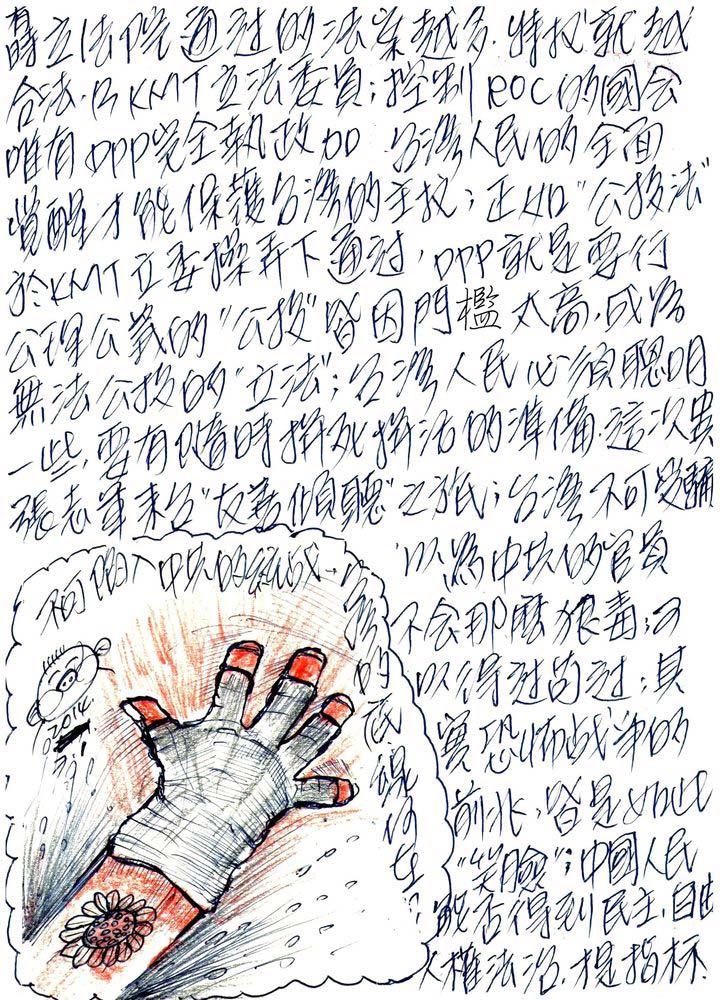 立法院通過的法案越多.特权就越
合法.因KMT立法委員;控制ROC的國会
唯有DPP完全執政加 台灣人民的全面
覺醒才能保護台灣的主权;正如"公投法"
於KMT立委操弄下通过,DPP就是要行
公理公義的"公投"皆因門檻太高.成為
無法公投的"立法";台灣人民必須聰明
一些,要有隨時拼死拼活的準備.這次
張志軍來台"友善傾聽"之旅;台灣不可受騙
以為中共的官員
不会那麼狠毒;可
以得过苟过;其
實恐怖战争的
前兆,皆是如此
"笑臉";中國人民
能否得到民主.自由
人權法治.才是指標.
不可陷入中共的統战
台灣的底線何在
2014.